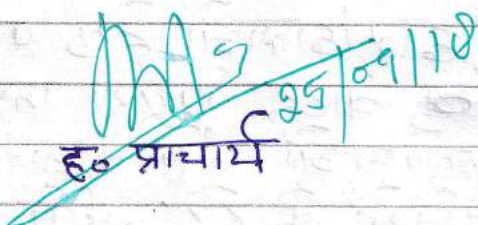 25/09/18
ह० प्राचार्य